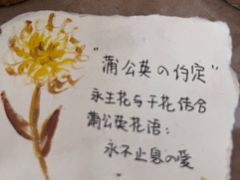 "蒲公英の约定"
永生花与干花结合
蒲公英花语：
永不止息の爱